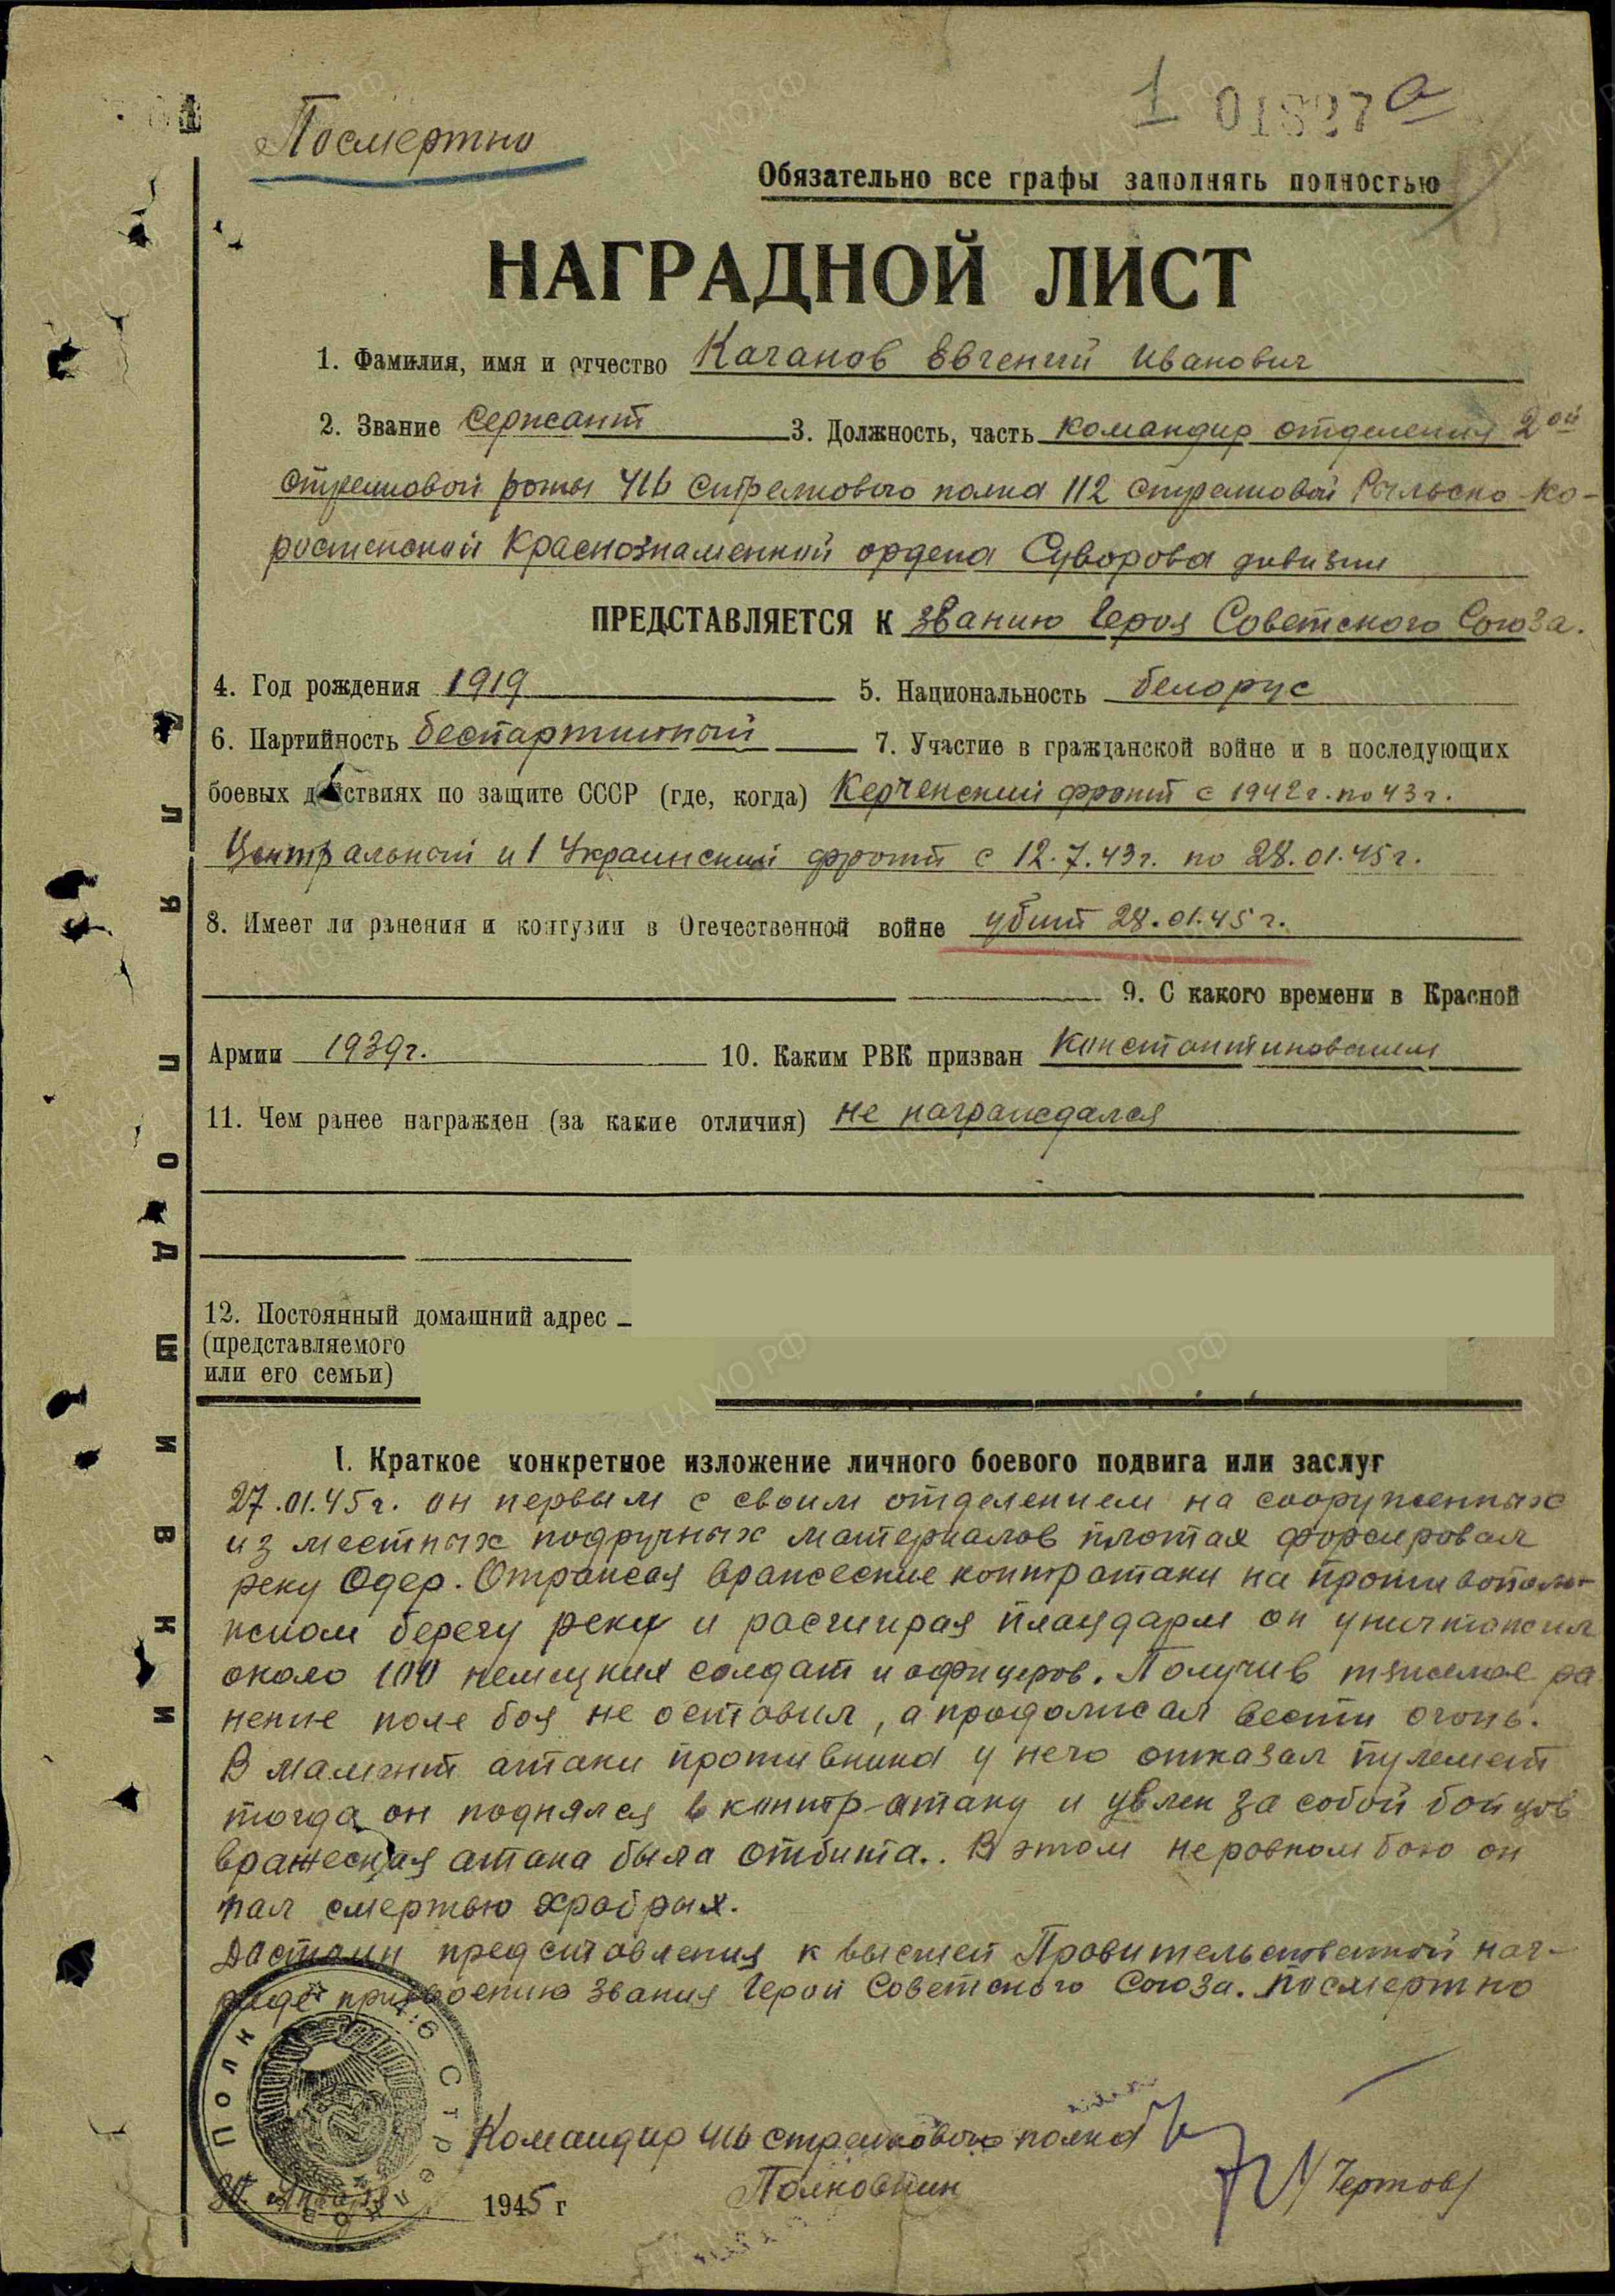 Посмертно
1 01827 а
Обязательно все графы заполнять полностью
НАГРАДНОЙ ЛИСТ
1. Фамилия, имя и отчество Качанов Евгений Иванович
2. Звание Сержант 3. Должность, часть командир отделения 2ой
стрелковой роты 416 стрелкового полка 112 стрелковой Рыльско-Ко-
ростенской Краснознаменной ордена Суворова дивизии
ПРЕДСТАВЛЯЕТСЯ К званию Героя Советского Союза.
4. Год рождения 1919 5. Национальность белорус
6. Партийность беспартийный 7. Участие в гражданской войне и в последующих
боевых действиях по защите СССР (где, когда) Керченский фронт с 1942г. по 43г.
Центральный и 1 Украинский фронт с 12.7.43г. по 28.01.45г.
8. Имеет ли ранения и контузии в Отечественной войне убит 28.01.45г.
9. С какого времени в Красной
Армии 1939г. 10. Каким РВК призван Константиновским
11. Чем ранее награжден (за какие отличия) не награждался
12. Постоянный домашний адрес
(представляемого
или его семьи)
I. Краткое конкретное изложение личного боевого подвига или заслуг
27.01.45г. он первым с своим отделением на сооруженных
из местных подручных материалов плотах форсировал
реку Одер. Отражая вражеские контратаки на противополо-
жном берегу реки и расширяя плацдарм он уничтожил
около 100 немецких солдат и офицеров. Получив тяжелое ра
нение поле боя не оставил, а продолжал вести огонь.
В мамент атаки противника у него отказал пулемет
тогда он поднялся в контр-атаку и увлек за собой бойцов
вражеская атака была отбита.. В этом неровном бою он
пал смертью храбрых.
Достоин представления к высшей Правительственной наг-
раде присвоению звания Герой Советского Союза. посмертно
Командир 416 стрелкового полка
Полковник Чертов
30 Января 1945 г
ПОДШИВКИ